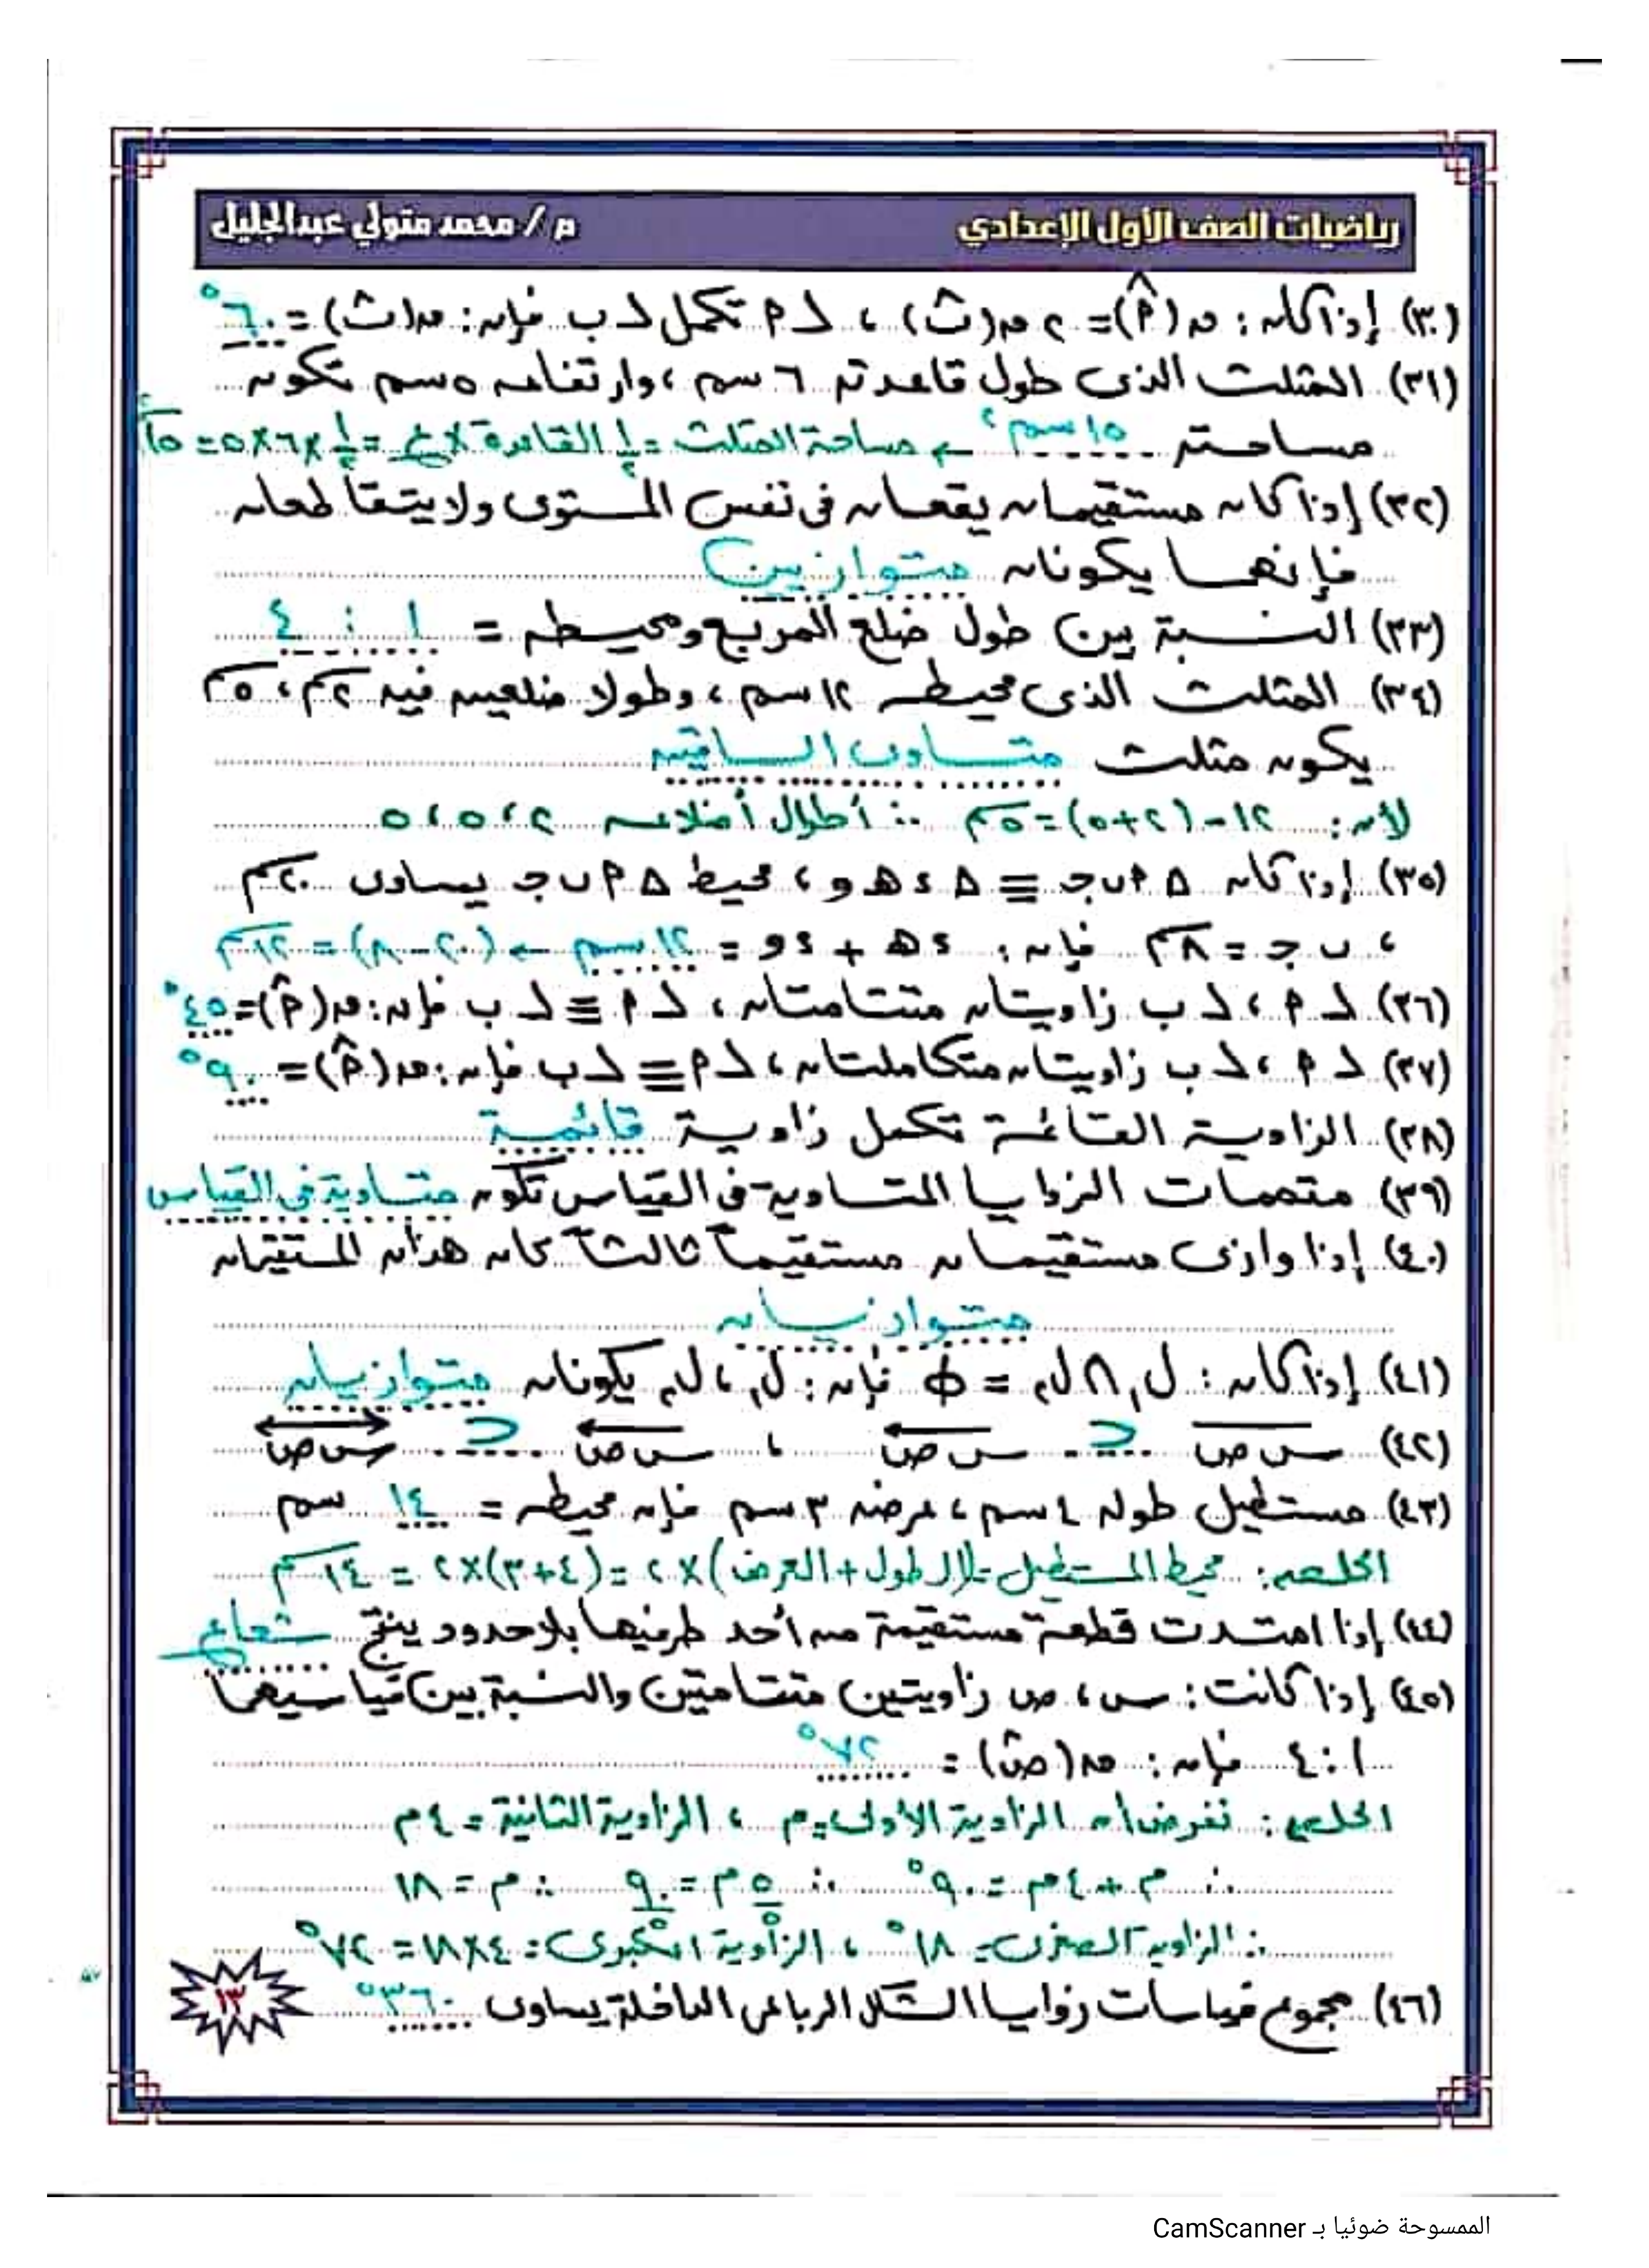 رياضيات الصف الأول الإعدادي
م / محمد متولي عبدالجليل
(٣٠) إذا كان: ن(أ̂) = ٢ ن(ب̂) ، د أ تكمل د ب فإن: ن(ب̂) = ٦٠°
(٣١) المثلث الذى طول قاعدته ٦ سم ، وارتفاعه ٥ سم تكون
مساحته ١٥ سم٢ ← مساحة المثلث = ½ القاعدة × ع = ½ × ٦ × ٥ = ١٥
(٣٢) إذا كان مستقيمان يقعان فى نفس المستوى ولا يتقاطعان
فإنهما يكونان متوازيين
(٣٣) النسبة بين طول ضلع المربع ومحيطه = ١ : ٤
(٣٤) المثلث الذى محيطه ١٢ سم ، وطولا ضلعين فيه ٢سم ، ٥سم
يكون مثلث متساوى الساقين
لأن: ١٢ - (٢+٥) = ٥سم ∴ أطوال أضلاعه ٢ ، ٥ ، ٥
(٣٥) إذا كان △ أ ب جـ ≡ △ د هـ و ، محيط △ أ ب جـ يساوى ٢٠سم
، ب جـ = ٨سم فإن: د هـ + د و = ١٢ سم ← (٢٠ - ٨) = ١٢سم
(٣٦) د أ ، د ب زاويتان متتامتان ، د أ ≡ د ب فإن: ن(أ̂) = ٤٥°
(٣٧) د أ ، د ب زاويتان متكاملتان ، د أ ≡ د ب فإن: ن(أ̂) = ٩٠°
(٣٨) الزاوية القائمة تكمل زاوية قائمة
(٣٩) متممات الزوايا المتساوية فى القياس تكون متساوية فى القياس
(٤٠) إذا وازى مستقيمان مستقيماً ثالثاً كان هذان المستقيمان
متوازيان
(٤١) إذا كان: ل₁ ∩ ل₂ = ϕ فإن: ل₁ ، ل₂ يكونان متوازيان
(٤٢) س ص ⊂ س ص ، س ص ⊂ س ص
(٤٣) مستطيل طوله ٤ سم ، عرضه ٣ سم فإن محيطه = ١٤ سم
الحل: محيط المستطيل = (الطول + العرض) × ٢ = (٤+٣) × ٢ = ١٤سم
(٤٤) إذا امتدت قطعة مستقيمة من أحد طرفيها بلا حدود ينتج شعاع
(٤٥) إذا كانت: س ، ص زاويتين متتامتين والنسبة بين قياسيهما
١ : ٤ فإن: ن(ص̂) = ٧٢°
الحل: نفرض أن الزاوية الأولى = م ، الزاوية الثانية = ٤ م
∴ م + ٤ م = ٩٠° ∴ ٥ م = ٩٠ ∴ م = ١٨
∴ الزاوية الصغرى = ١٨° ، الزاوية الكبرى = ٤ × ١٨ = ٧٢°
(٤٦) مجموع قياسات زوايا الشكل الرباعى الداخلة يساوى ٣٦٠°
١٣
الممسوحة ضوئيا بـ CamScanner